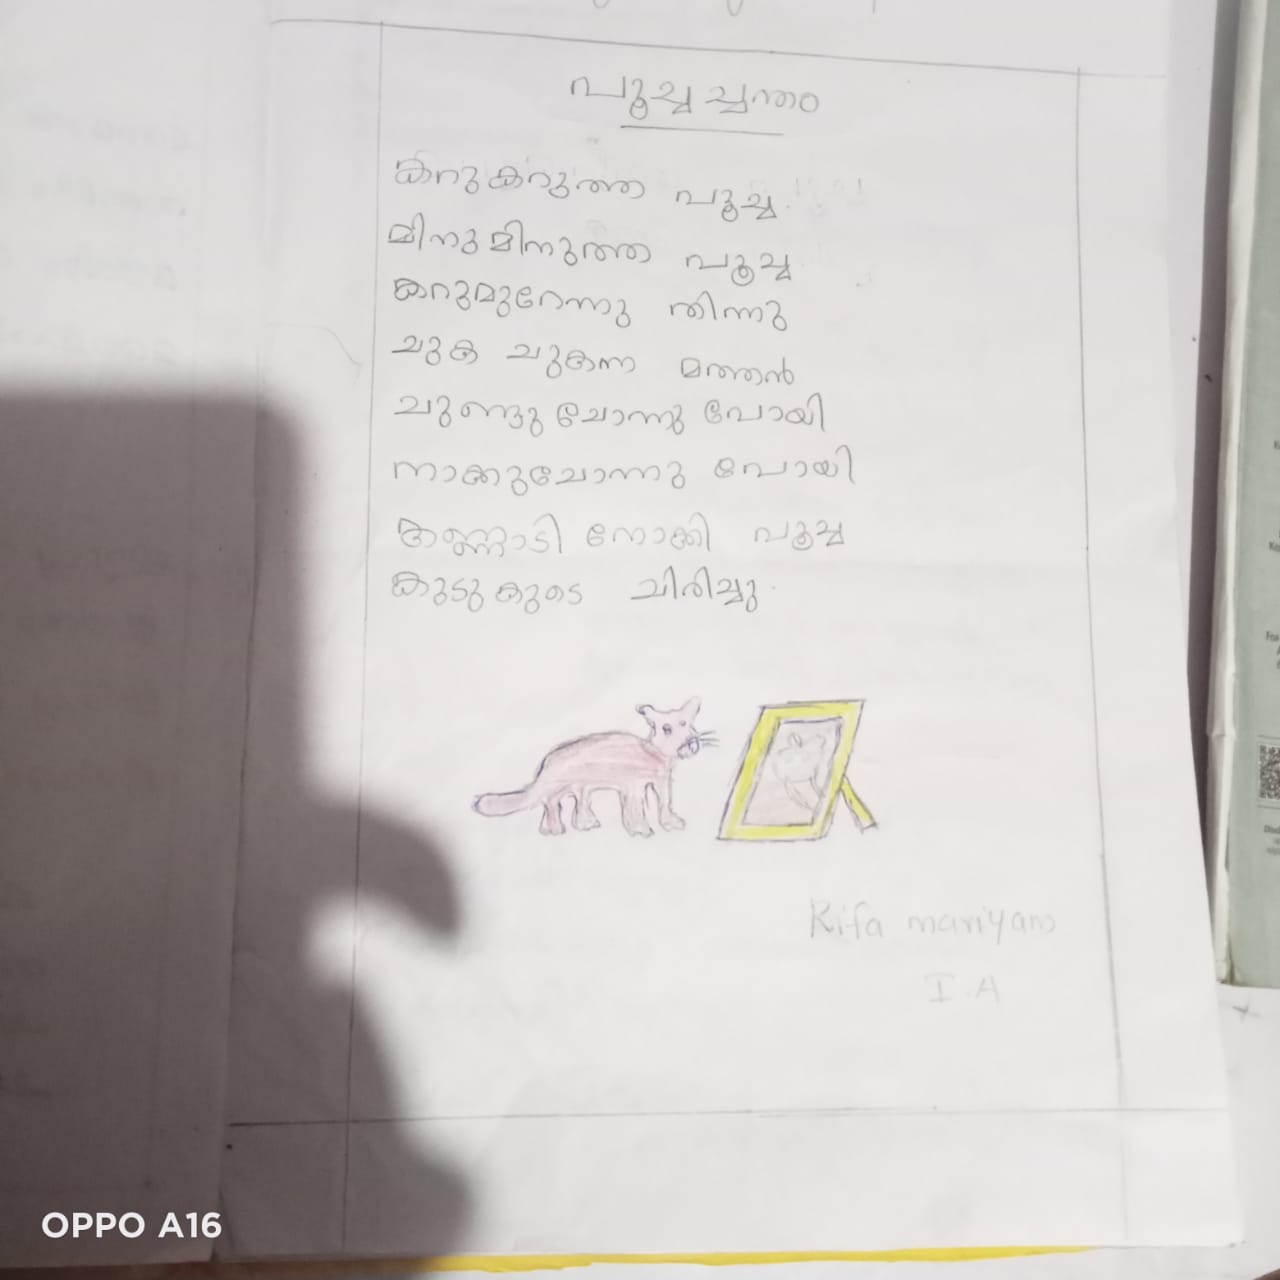 പൂച്ച ച്ചന്തം
കറുകറുത്ത പൂച്ച.
മിനുമിനുത്ത പൂച്ച
കറുമുറേന്നു തിന്നു
ചുക ചുകന്ന മത്തൻ
ചുണ്ടു ചോന്നു പോയി
നാക്കുചോന്നു പോയി
കണ്ണാടി നോക്കി പൂച്ച
കുടുകുടെ ചിരിച്ചു.
Rifa mariyam
I.A
OPPO A16